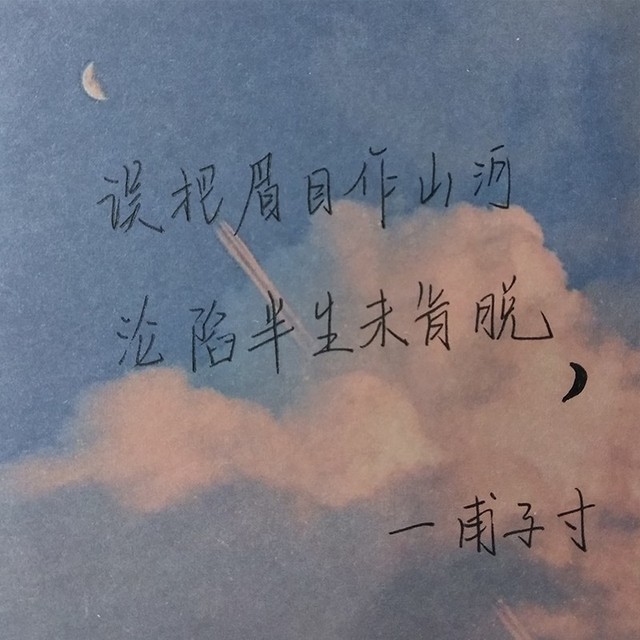 误把眉目作山河
沦陷半生未肯脱
一甫子寸